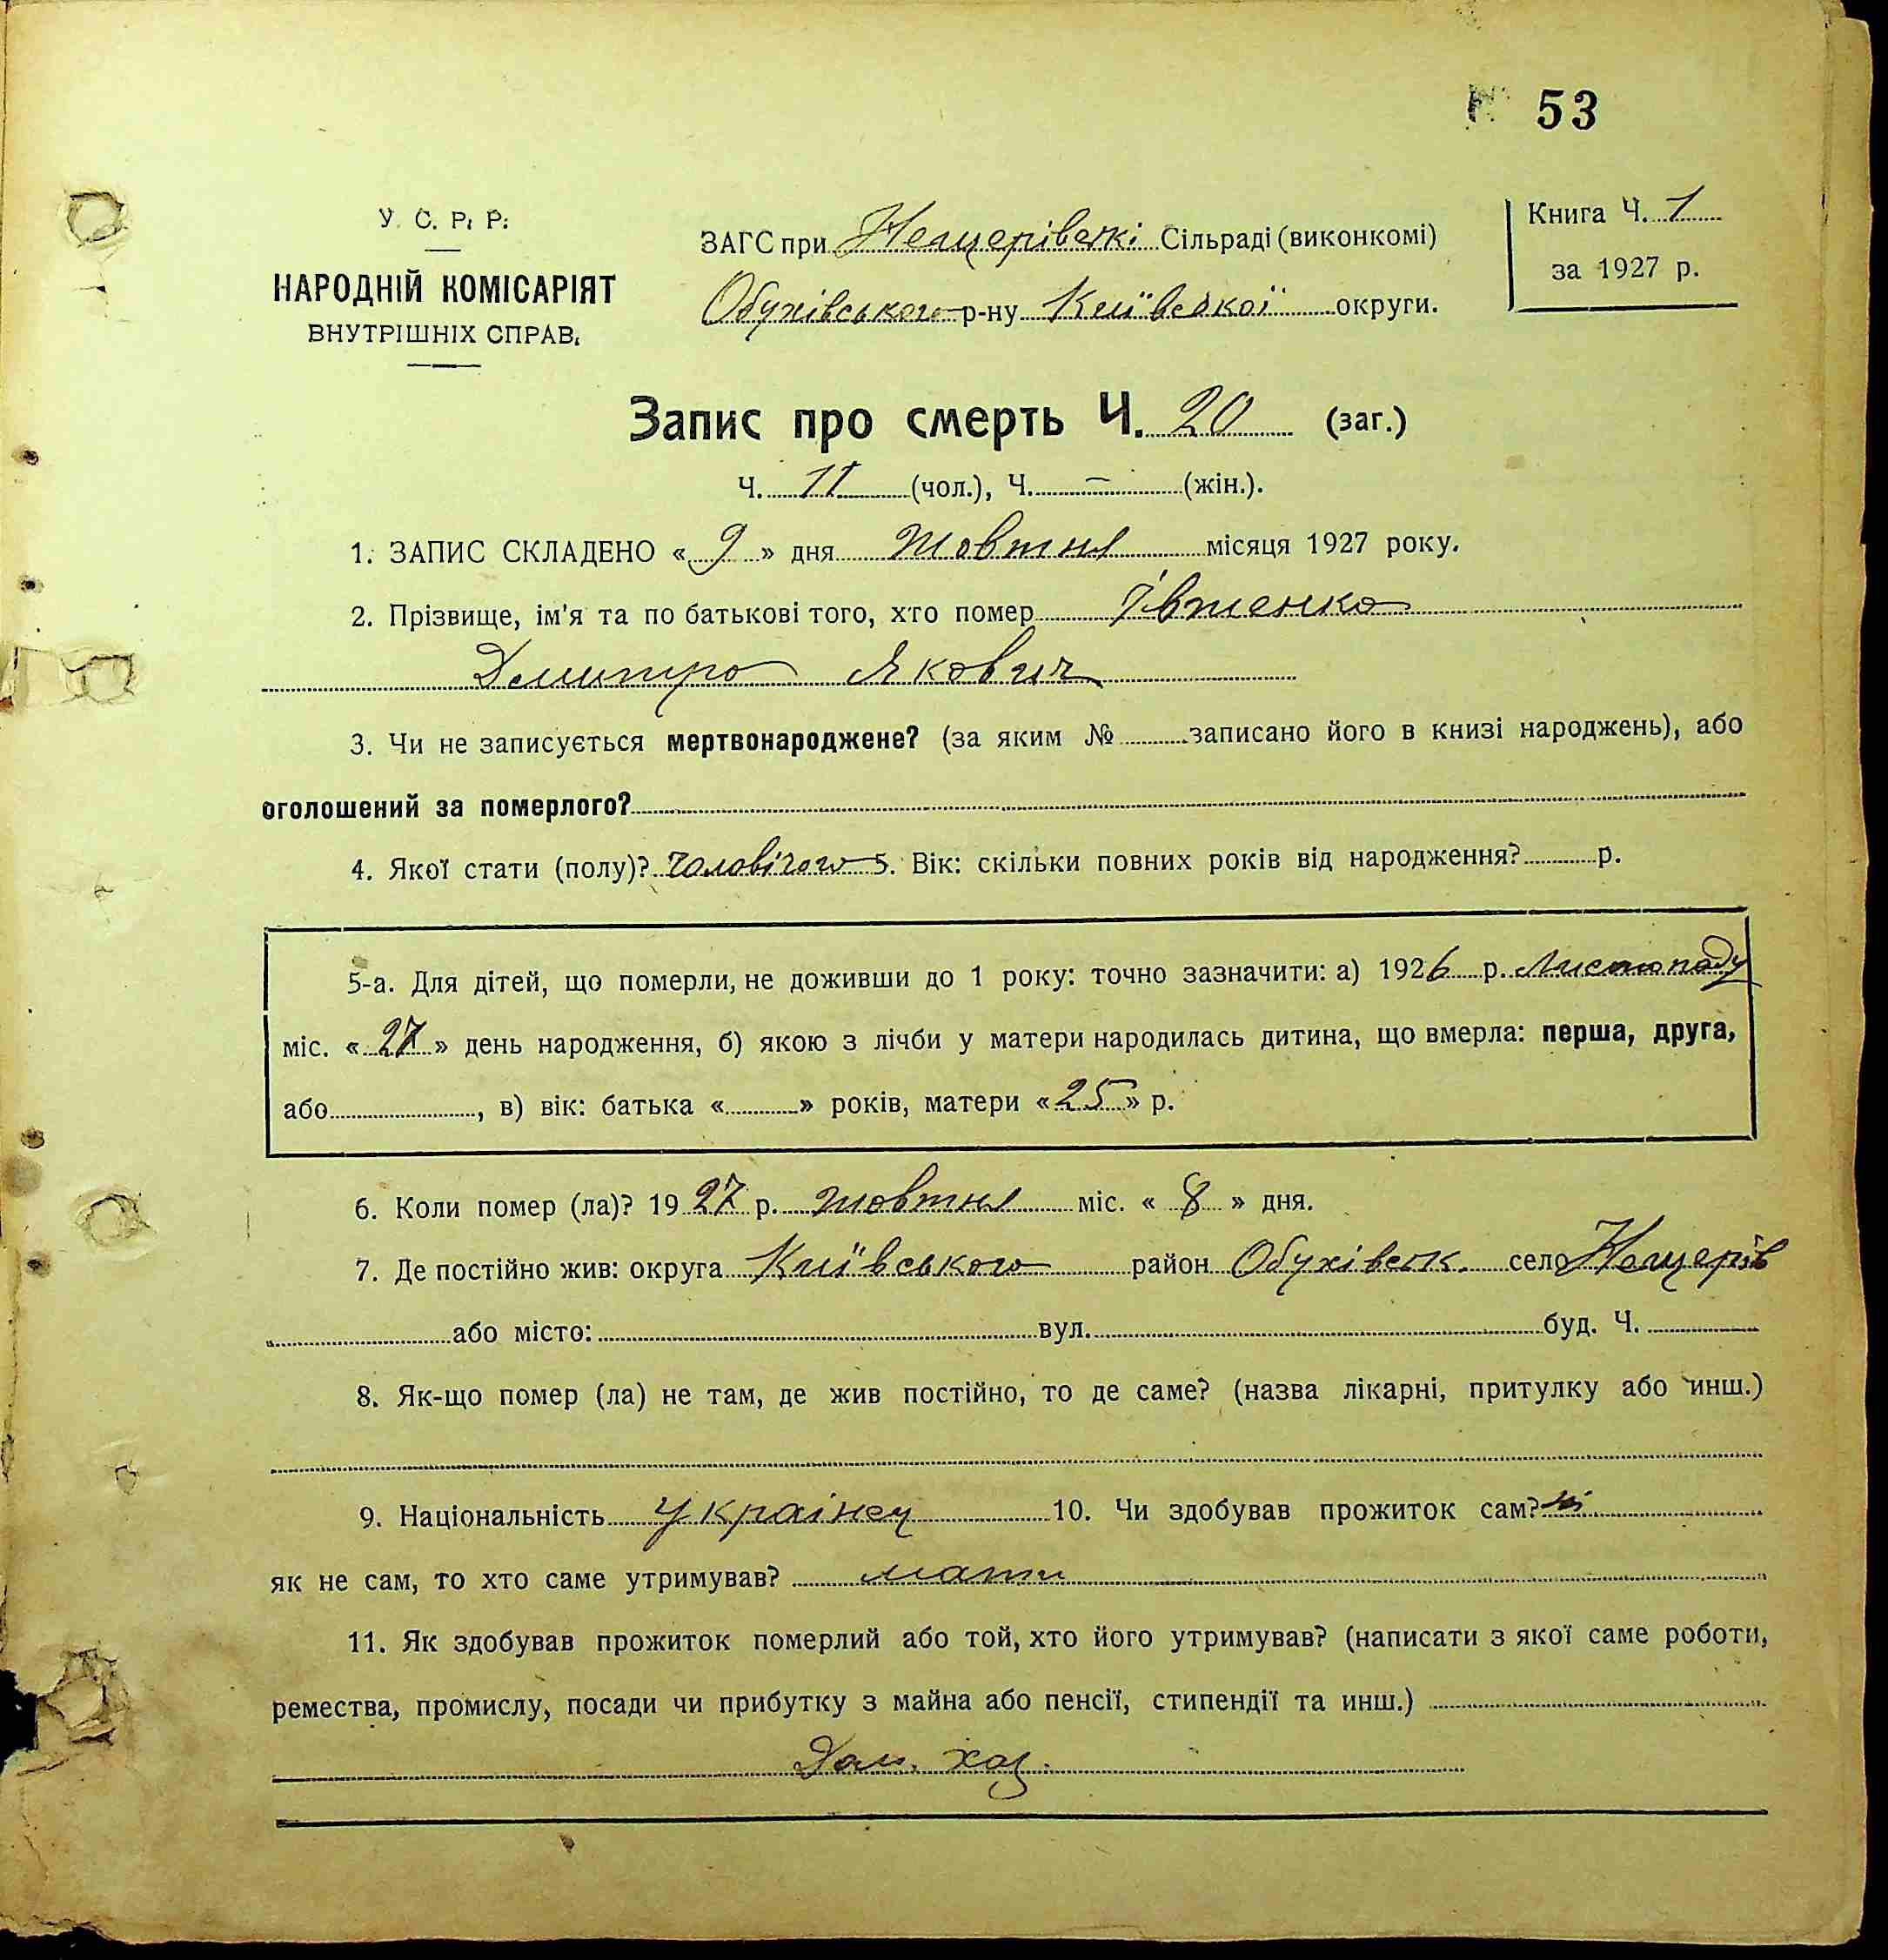 53
У. С. Р. Р.
НАРОДНІЙ КОМІСАРІЯТ
ВНУТРІШНІХ СПРАВ.
ЗАГС при Нещерівскі Сільраді (виконкомі)
Обухівського р-ну Київської округи.
Книга Ч. 1
за 1927 р.
Запис про смерть Ч. 20 (заг.)
Ч. 11 (чол.), Ч. – (жін.).
1. ЗАПИС СКЛАДЕНО « 9 » дня жовтня місяця 1927 року.
2. Прізвище, ім'я та по батькові того, хто помер Івшенко
Дмитро Якович
3. Чи не записується мертвонароджене? (за яким № записано його в книзі народжень), або
оголошений за померлого?
4. Якої стати (полу)? чоловічого 5. Вік: скільки повних років від народження? р.
5-а. Для дітей, що померли, не доживши до 1 року: точно зазначити: а) 1926 р. Листопаду
міс. « 27 » день народження, б) якою з лічби у матери народилась дитина, що вмерла: перша, друга,
або , в) вік: батька « » років, матери « 25 » р.
6. Коли помер (ла)? 1927 р. жовтня міс. « 8 » дня.
7. Де постійно жив: округа Київського район Обухівськ. село Нещерів
або місто: вул. буд. Ч.
8. Як-що помер (ла) не там, де жив постійно, то де саме? (назва лікарні, притулку або инш.)
9. Національність Українец 10. Чи здобував прожиток сам? ні
як не сам, то хто саме утримував? мати
11. Як здобував прожиток померлий або той, хто його утримував? (написати з якої саме роботи,
ремества, промислу, посади чи прибутку з майна або пенсії, стипендії та инш.)
Дом. хоз.